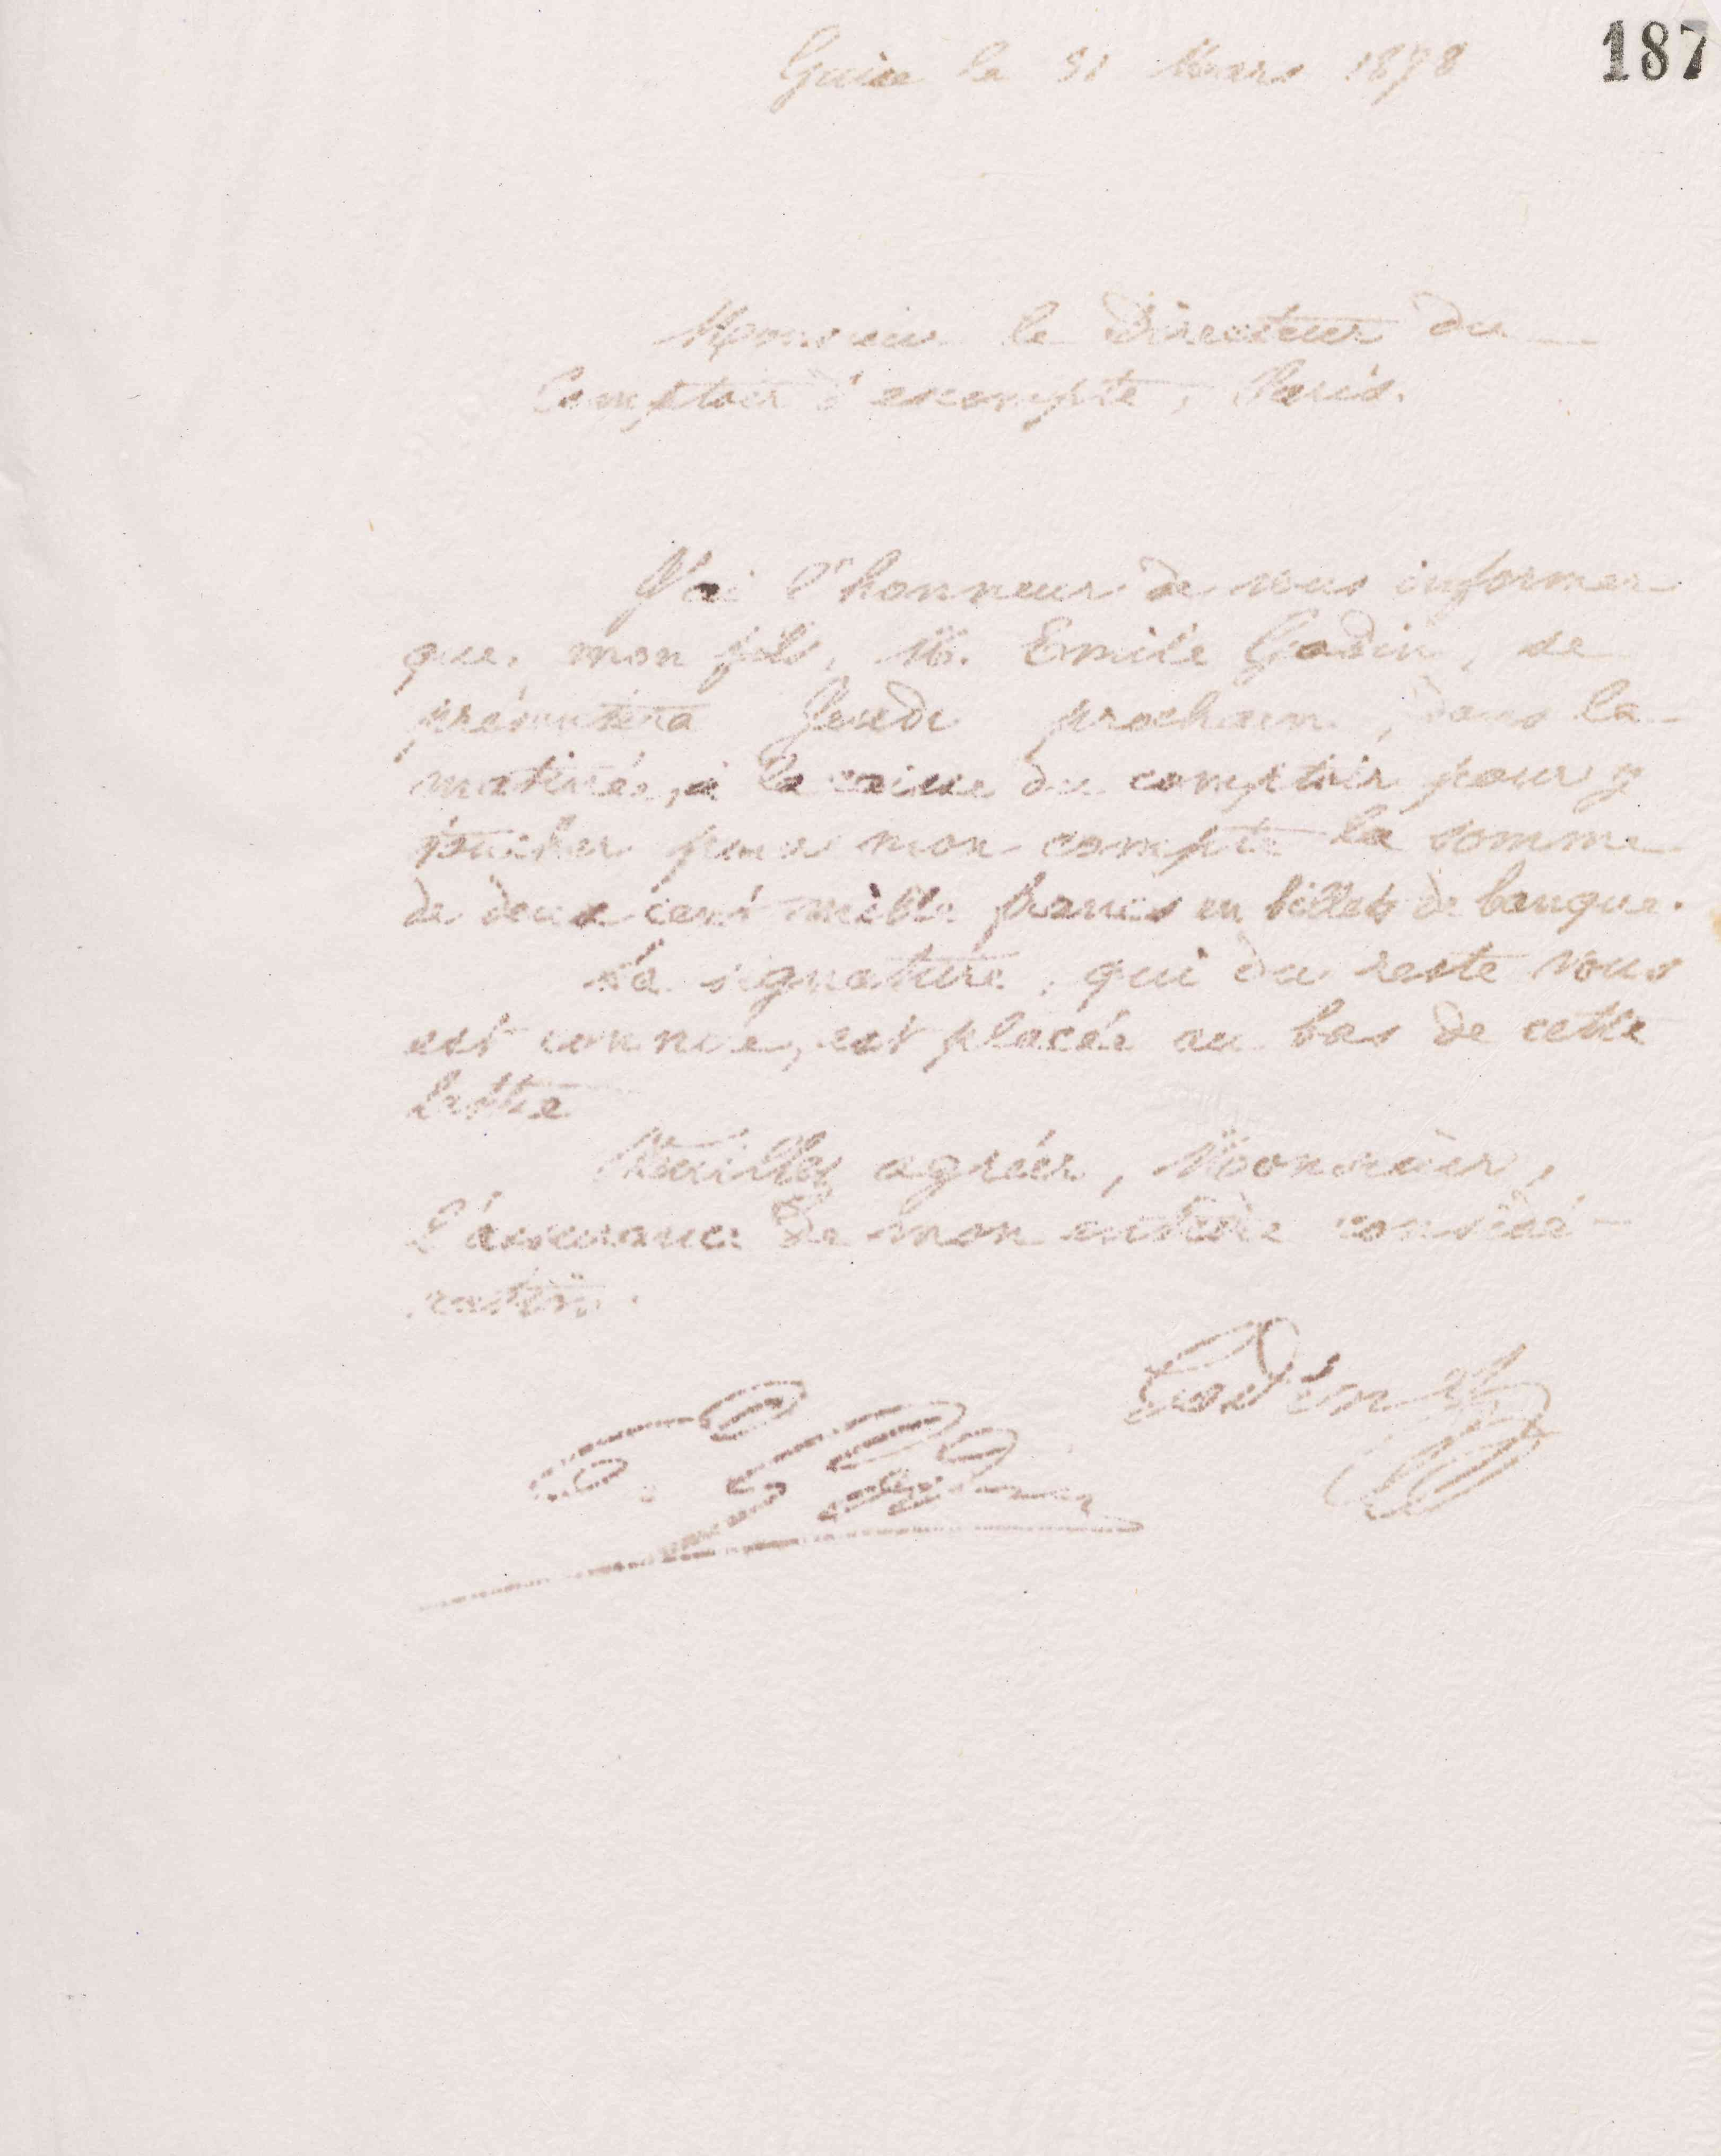 187
Guise le 31 Mars 1878
Monsieur le Directeur du
Comptoir d'escompte, Paris.
J'ai l'honneur de vous informer
que, mon fils, M. Emile Godin, se
présentera Jeudi prochain, dans la
matinée, à la caisse du comptoir pour y
toucher pour mon compte la somme
de deux cent mille francs en billets de banque.
Sa signature, qui du reste vous
est connue, est placée au bas de cette
lettre
Veuillez agréer, Monsieur,
l'assurance de mon entière considé-
ration.
Godin
E. Godin